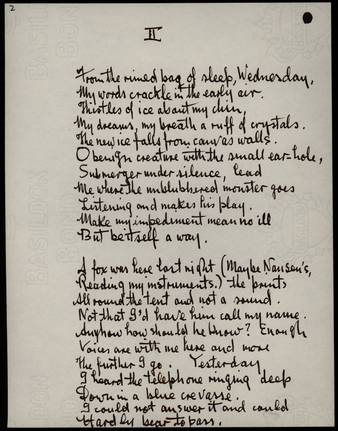 2
II
From the rimed bag of sleep, Wednesday,
My words crackle in the early air.
Thistles of ice about my chin,
My dreams, my breath a ruff of crystals.
The new ice falls from canvas walls.
O benign creature with the small ear-hole,
Submerger under silence, lead
Me where the unblubbered monster goes
Listening and makes his play.
Make my impediment mean no ill
But be itself a way.
A fox was here last night (Maybe Nansen's,
Reading my instruments.) the prints
All round the tent and not a sound.
Not that I'd have him call my name.
Anyhow how should he know? Enough
Voices are with me here and more
The further I go. Yesterday
I heard the telephone ringing deep
Down in a blue crevasse.
I could not answer it and could
Hardly bear to pass.